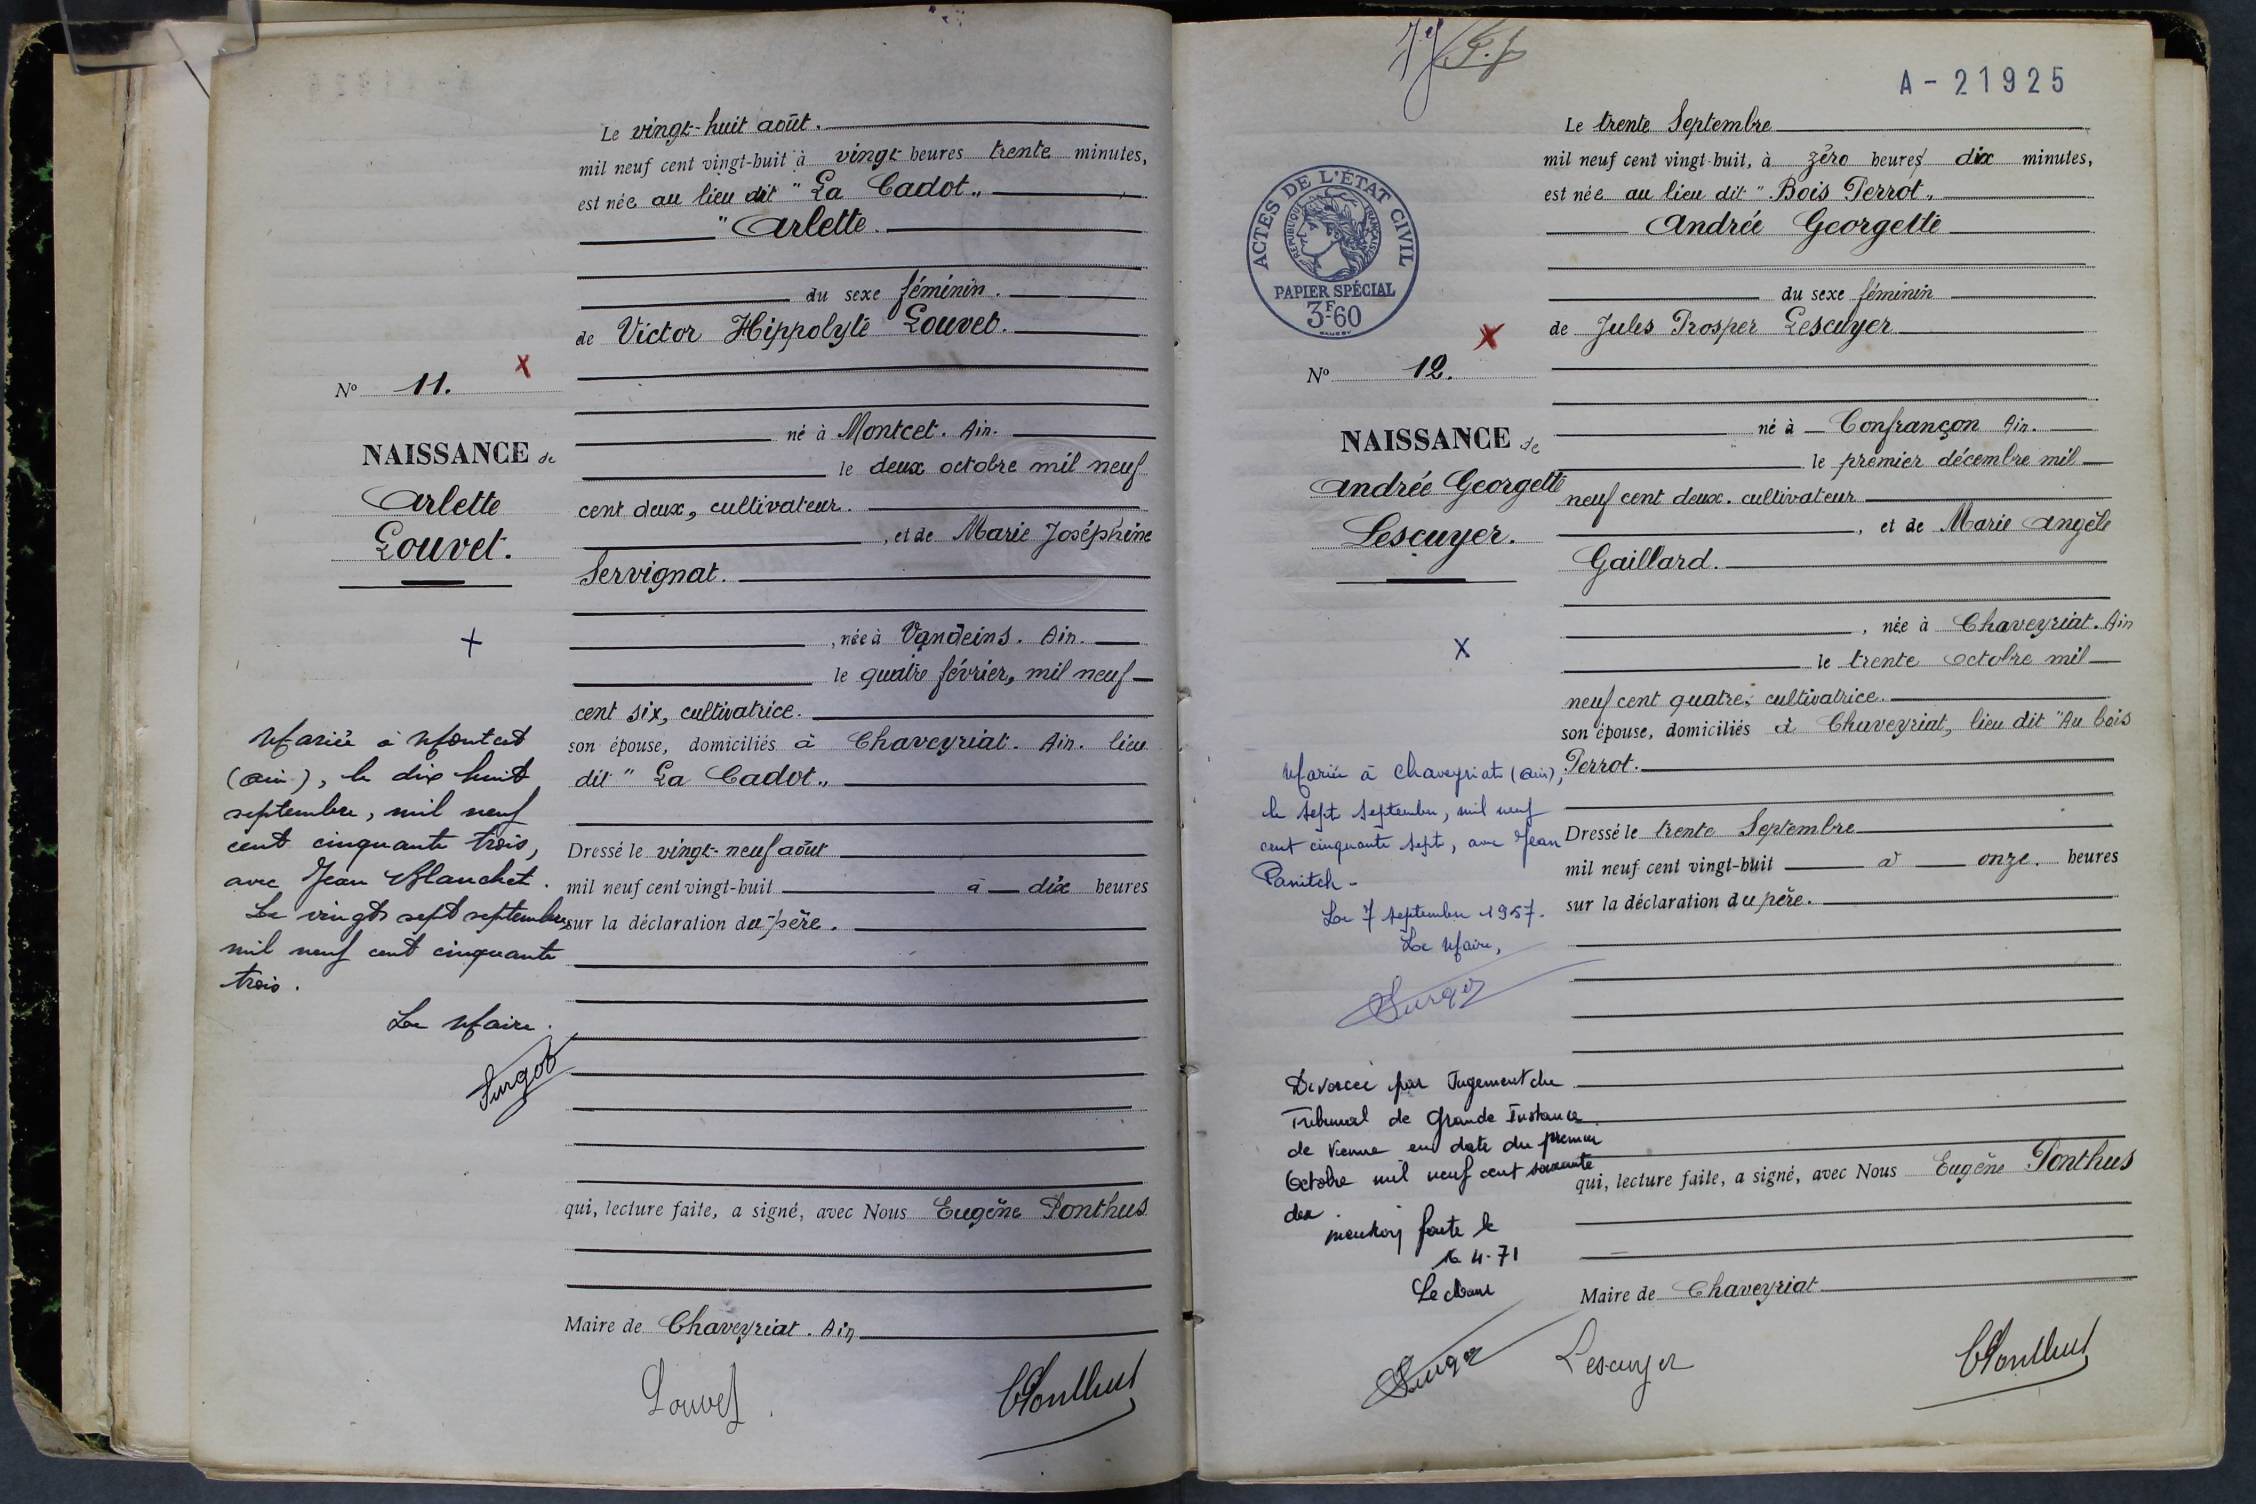 Le vingt-huit août.
mil neuf cent vingt-huit à vingt heures trente minutes,
est née au lieu dit "La Cadot„
"Arlette
du sexe féminin.
de Victor Hippolyte Louvet.
né à Montcet. Ain.
le deux octobre mil neuf
cent deux, cultivateur.
, et de Marie Joséphine
Servignat.
, née à Vandeins. Ain.
le quatre février, mil neuf
cent six, cultivatrice.
son épouse, domiciliés à Chaveyriat. Ain. lieu
dit "La Cadot„
Dressé le vingt-neuf août
mil neuf cent vingt-huit à dix heures
sur la déclaration du père.
qui, lecture faite, a signé, avec Nous Eugène Ponthus
Maire de Chaveyriat. Ain
Louvet
Ponthus
No 11. X
NAISSANCE de
Arlette
Louvet.
+
Mariée à Montcet
(Ain), le dix huit
septembre, mil neuf
cent cinquante trois,
avec Jean Blanchet.
Le vingt sept septembre
mil neuf cent cinquante
trois.
Le Maire.
A-21925
Le trente Septembre
mil neuf cent vingt-huit, à zéro heures dix minutes,
est née au lieu dit "Bois Perrot„
Andrée Georgette
du sexe féminin
de Jules Prosper Lescuyer
né à Confrançon Ain.
le premier décembre mil
neuf cent deux. cultivateur
, et de Marie Angèle
Gaillard.
, née à Chaveyriat. Ain
le trente octobre mil
neuf cent quatre, cultivatrice.
son épouse, domiciliés à Chaveyriat, lieu dit "Au bois
Perrot.
Dressé le trente Septembre
mil neuf cent vingt-huit à onze. heures
sur la déclaration du père.
qui, lecture faite, a signé, avec Nous Eugène Ponthus
Maire de Chaveyriat
Lescuyer
Ponthus
ACTES DE L'ÉTAT CIVIL
RÉPUBLIQUE FRANÇAISE
PAPIER SPÉCIAL
3F60
No 12. X
NAISSANCE de
Andrée Georgette
Lescuyer.
X
Mariée à Chaveyriat (Ain),
le sept septembre, mil neuf
cent cinquante sept, avec Jean
Panitch -
Le 7 septembre 1957.
Le Maire,
Divorcée par Jugement du
Tribunal de Grande Instance
de Vienne en date du premier
Octobre mil neuf cent soixante
dix.
mention faite le
16 4-71
Le Maire